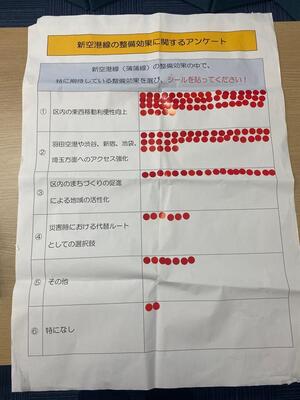 新空港線の整備効果に関するアンケート
新空港線（蒲蒲線）の整備効果の中で、
特に期待している整備効果を選び、シールを貼ってください！
① 区内の東西移動利便性向上
② 羽田空港や渋谷、新宿、池袋、
埼玉方面へのアクセス強化
③ 区内のまちづくりの促進
による地域の活性化
④ 災害時における代替ルート
としての選択肢
⑤ その他
⑥ 特になし